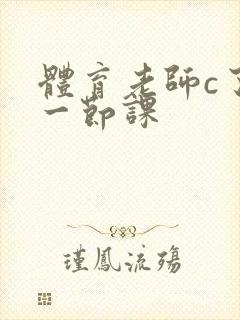 體育老師c了
一節課
瑾鳳流殤